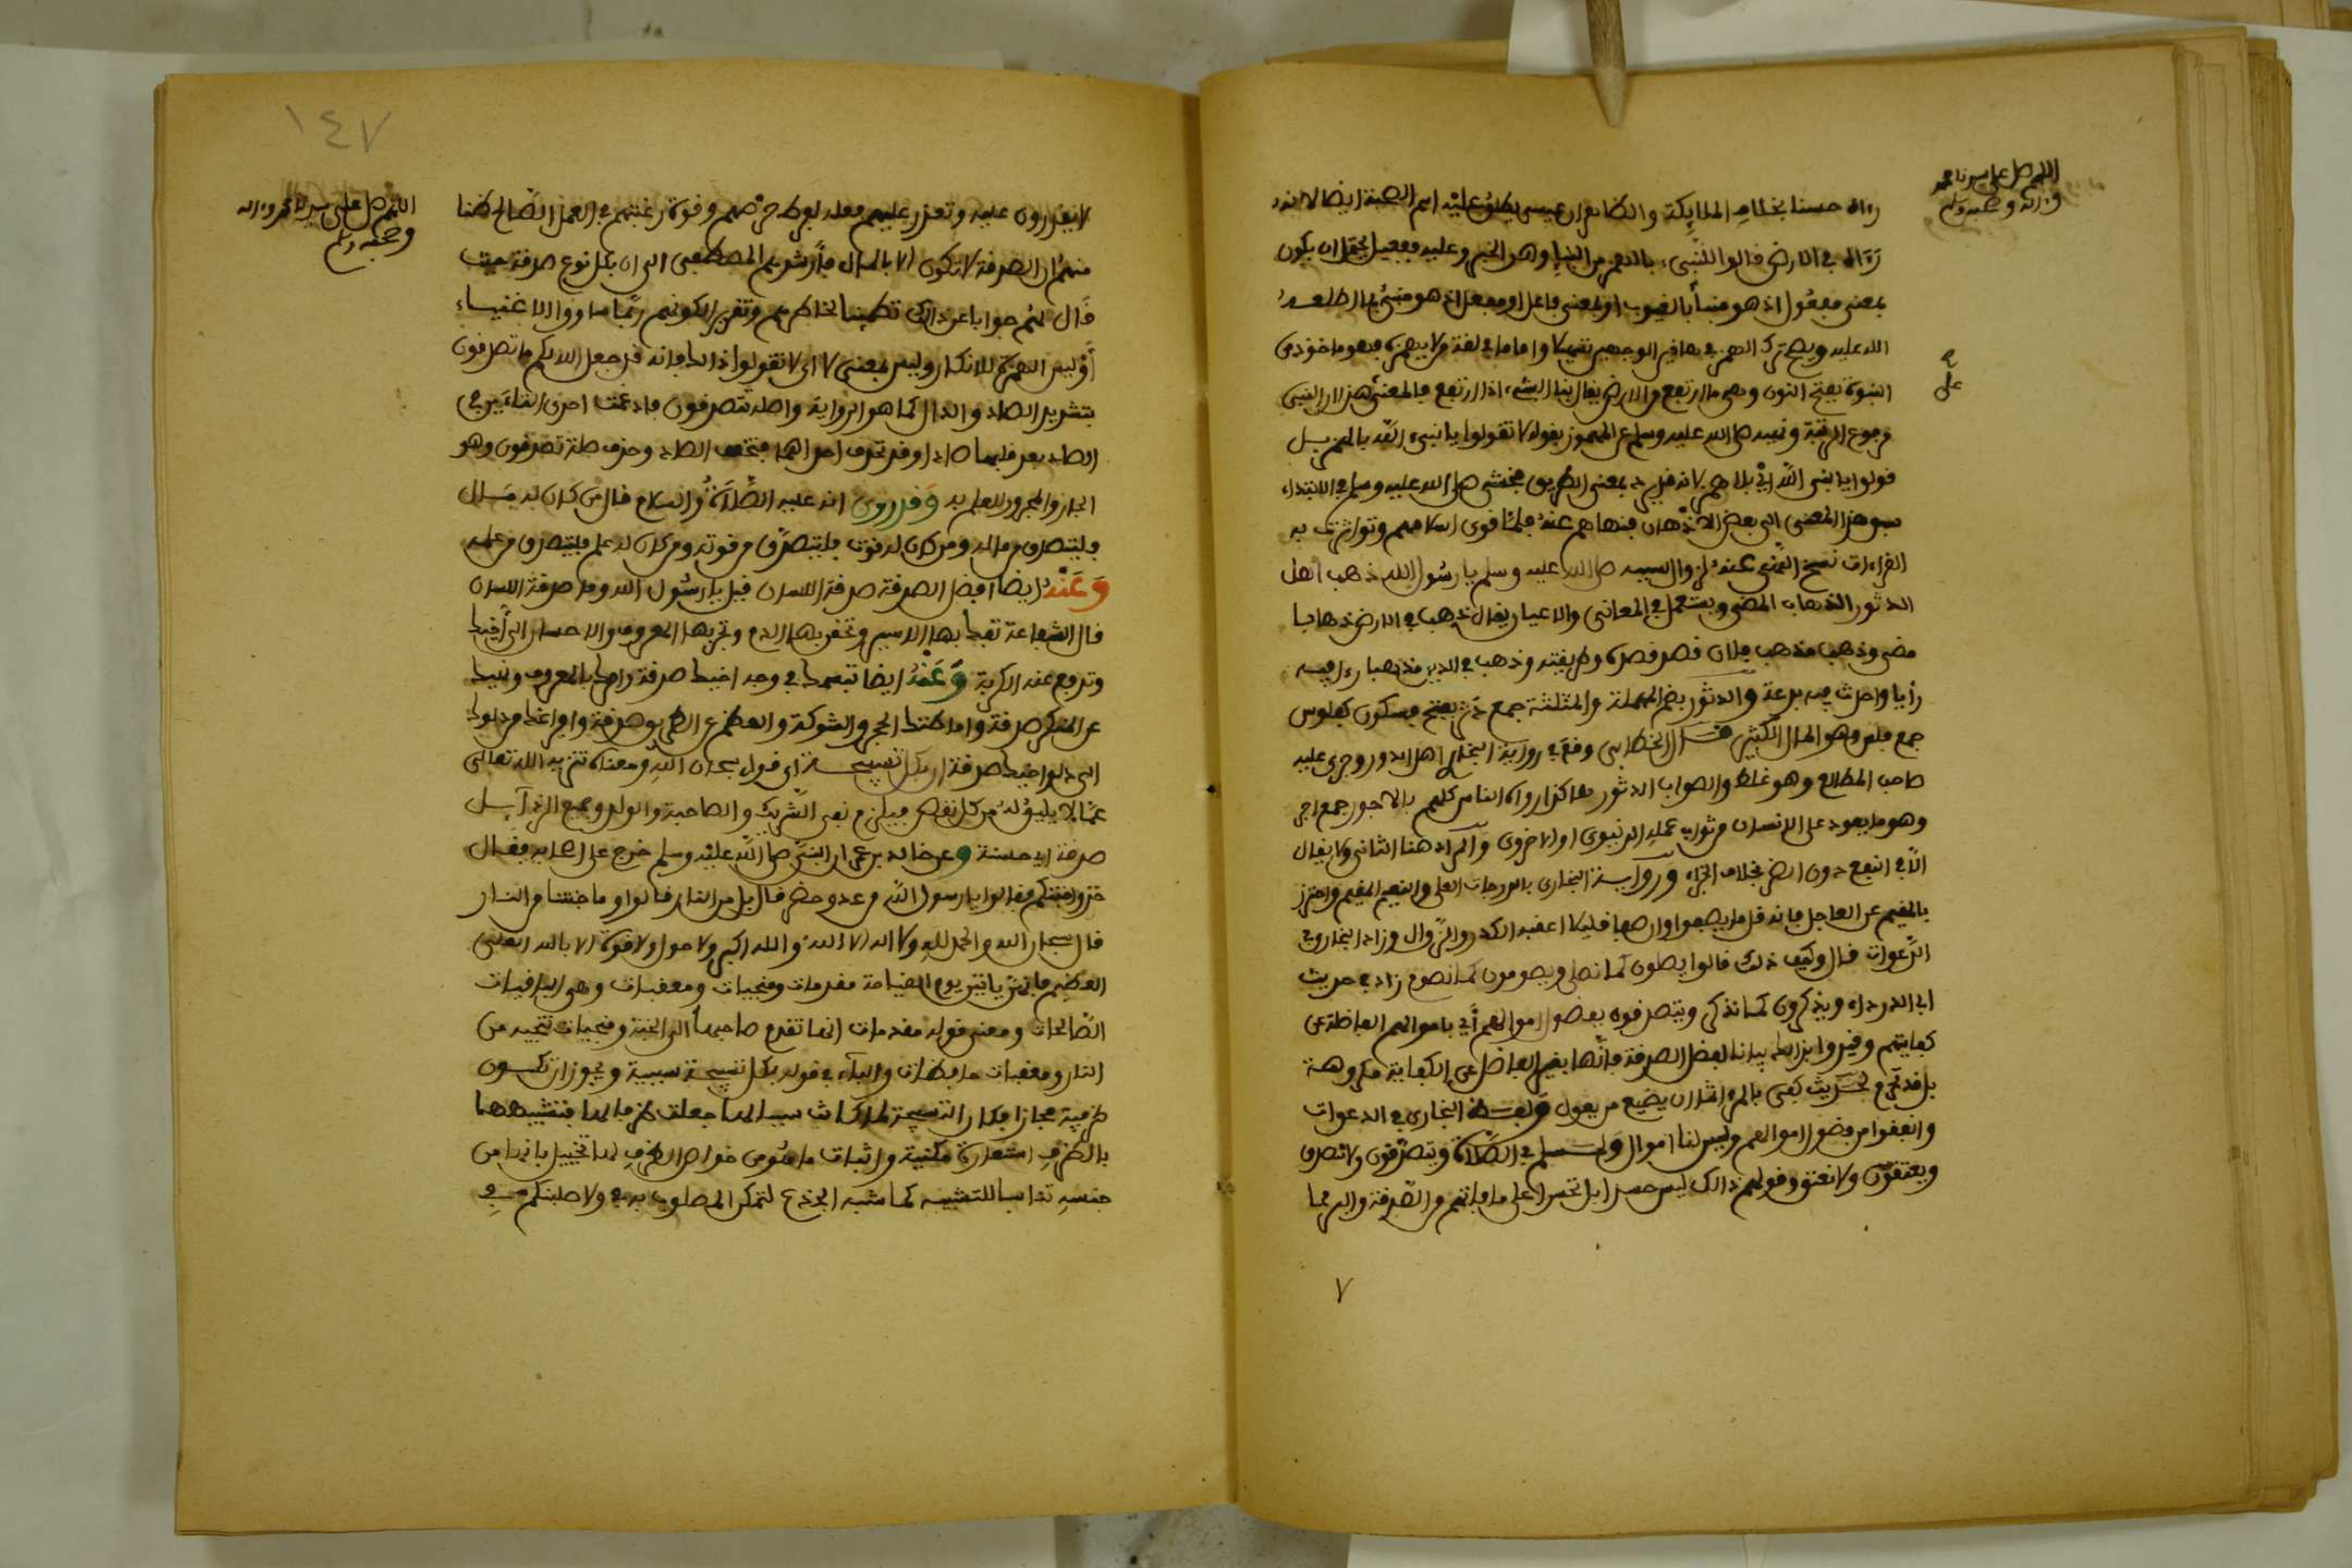 اللهم صل على سيدنا محمد
وءاله وصحبه وسلم
رءاه حسنا بخلاف الملايكة والظاهر ان عيسى يطلق عليه اسم الصحبة ايضا لانه
رءاه في الارض قالوا للنبيء بالهمز من النبإ وهو الخبر وعليه ففعيل يحتمل ان يكون
بمعنى مفعول اذ هو منبأ بالغيوب او بمعنى فاعل او مفعل اذ هو منبئ بما اطلعه
الله عليه ويصح ترك الهمز في هاذين الوجهين تسهيلا واما ما في لغة من لا يهمزه فهو ماخوذ من
النبوة بفتح النون وهي ما ارتفع من الارض يقال نبا الشيء اذا ارتفع فالمعنى هذا ان النبي
مرفوع الرتبة ونهيه صلى الله عليه وسلم عن المهموز بقوله لا تقولوا يا نبيء الله بالهمز بل
قولوا يا نبي الله اي بلا همز لانه قد يرد بمعنى الطريق فخشي صلى الله عليه وسلم في الابتداء
سبق هذا المعنى الى بعض الاذهان فنهاهم عنه فلما قوي اسلامهم وتواترت به
القراءات نسخ النهي عنه لزوال سببه صلى الله عليه وسلم يا رسول الله ذهب اهل
الدثور الذهاب المضي ويستعمل في المعاني والاعيان يقال ذهب في الارض ذهابا
مضى وذهب مذهب فلان قصد قصده وطريقته وذهب في الدين مذهبا رءا فيه
رأيا واحدث فيه بدعة والدثور بضم المهملة والمثلثة جمع دثر بفتح فسكون كفلوس
جمع فلس وهو المال الكثير قال الخطابي وقع في رواية البخاري اهل الدور وجرى عليه
صاحب المطالع وهو غلط والصواب الدثور هاكذا رواه الناس كلهم بالاجور جمع اجر
وهو ما يعود على الانسان من ثواب عمله الدنيوي او الاخروي والمراد هنا الثاني ولا يقال
الا في النفع دون الضر بخلاف الجزاء ورواية البخاري بالدرجات العلى والنعيم المقيم واحترز
بالمقيم عن العاجل فانه قل ما يصفو وان صفا فليلا اعقبه الكدر والزوال وزاد البخاري في
الدعوات قال وكيف ذلك قالوا يصلون كما نصلي ويصومون كما نصوم زاد في حديث
ابي الدرداء ويذكرون كما نذكر ويتصدقون بفضول اموالهم أي باموالهم الفاضلة عن
كفايتهم وقيدوا بذالك بيانا لفضل الصدقة فانها بغير الفاضل عن الكفاية مكروهة
بل قد تحرم لحديث كفى بالمرء اثما ان يضيع من يعول ولفظ البخاري في الدعوات
وانفقوا من فضول اموالهم وليس لنا اموال ولمسلم في الصلاة ويتصدقون ولا نتصدق
ويعتقون ولا نعتق وقولهم ذالك ليس حسدا بل تحسرا على ما فاتهم من الصدقة والبر مما
٧
١٤٧
اللهم صل على سيدنا محمد وءاله
وصحبه وسلم
لا يقدرون عليه وتعذر عليهم فعله لفرط حرصهم وقوة رغبتهم في العمل الصالح ظنا
منهم ان الصدقة لا تكون الا بالمال فارشدهم المصطفى الى ان بكل نوع صدقة حيث
قال لهم جوابا عن ذالك تطمينا لخاطرهم وتقريرا لكونهم ربما ساووا الاغنياء
أوليس الهمزة للانكار وليس بمعنى لا اي لا تقولوا ذالك فانه قد جعل الله لكم ما تصدقون
بتشديد الصاد والدال كما هو الرواية واصله تتصدقون فادغمت احدى التاءين في
الصاد بعد قلبها صادا وقد تحذف احداهما فتخفف الصاد وحذف صلة تصدقون وهو
الجار والمجرور للعلم به وقد روي انه عليه الصلاة والسلام قال من كان له مال
فليتصدق من ماله ومن كان له قوت فليتصدق من قوته ومن كان له علم فليتصدق من علمه
وعنه ايضا افضل الصدقة صدقة اللسان قيل يا رسول الله وما صدقة اللسان
قال الشفاعة تفك بها الاسير وتحقن بها الدم وتجر بها المعروف والاحسان الى أخيك
وتدفع عنه الكريهة وعنه ايضا تبسمك في وجه اخيك صدقة وامرك بالمعروف ونهيك
عن المنكر صدقة واماطتك الحجر والشوكة والعظم عن الطريق صدقة وافراغك من دلوك
الى دلو اخيك صدقة ان بكل تسبيحة أي قول سبحان الله ومعناه تنزيه الله تعالى
عما لا يليق له من كل نقص فيلزم نفي الشريك والصاحبة والولد وجميع الرذائل
صدقة اي حسنة وعن خالد بن عمران النبي صلى الله عليه وسلم خرج على اصحابه فقال
خذوا جنتكم فقالوا يا رسول الله من عدو حضر قال بل من النار قالوا وما جنتنا من النار
قال سبحان الله والحمد لله ولا اله الا الله والله اكبر ولا حول ولا قوة الا بالله العلي
العظيم فانهن ياتين يوم القيامة مقدمات ومنجيات ومعقبات وهي الباقيات
الصالحات ومعنى قوله مقدمات انها تقدم صاحبها الى الجنة ومنجيات تنجيه من
النار ومعقبات حافظات والباء في قوله بكل تسبيحة سببية ويجوز ان تكون
ظرفية مجازا فكأن التسبيحة لما كانت سببا لها جعلت ظرفا لها فتشبيهها
بالظرف استعارة مكنية واثبات ما هو من خواص الظرف لها تخييل بانها من
جنسه تناسبا للتشبيه كما شبه الجذع لتمكن المصلوب به في ولاصلبنكم في